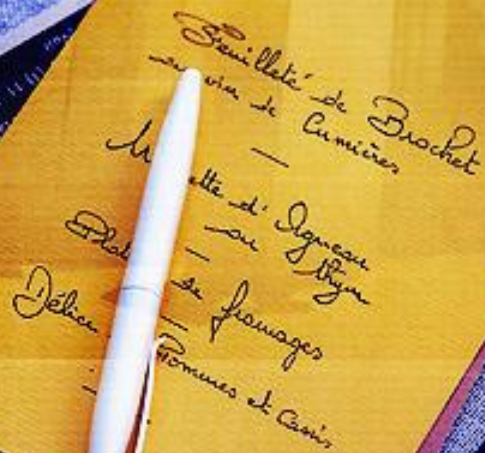 Feuilleté de Brochet
au vin de Cumières
—
d'Agneau
au thym
—
de fromages
—
Délice Pommes et Cassis